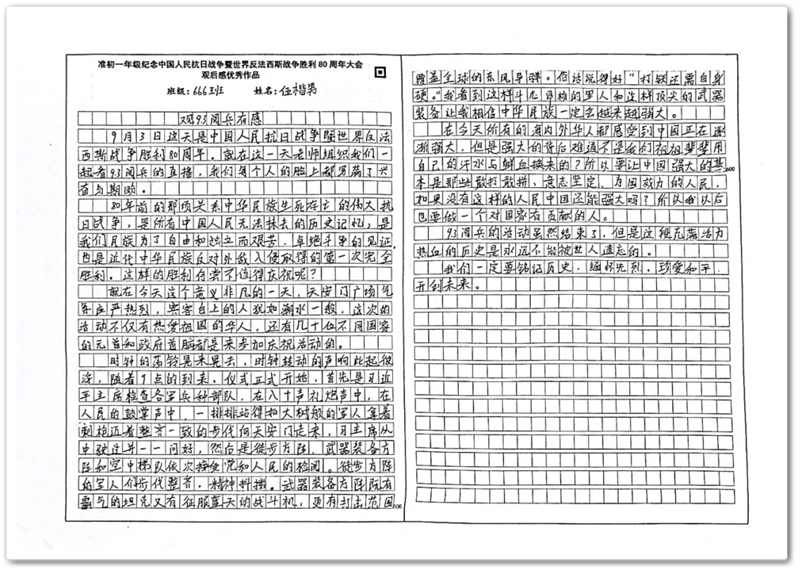 准初一年级纪念中国人民抗日战争暨世界反法西斯战争胜利80周年大会
观后感优秀作品
班级:666班 姓名:伍楷
观93阅兵有感
9月3日这天是中国人民抗日战争暨世界反法
西斯战争胜利80周年。就在这一天老师组织我们一
起看93阅兵的直播,我们每个人的脸上都写满了兴
奋与期盼。
80年前的那场关系中华民族生死存亡的伟大抗
日战争,是所有中国人民无法抹去的历史记忆,是
我们民族为了自由和独立而艰苦、卓绝斗争的见证
也是近代中华民族反对外敌入侵取得的第一次完全
胜利。这样的胜利自豪不值得庆祝呢?
就在今天这个意义非凡的一天,天安门广场气
氛庄严热烈,宾客台上的人犹如潮水一般,这次的
活动不仅有热爱祖国的华人,还有几十位不同国家
的元首和政府首脑都是来参加庆祝活动的。
时钟的荡铃晃来晃去,时钟转动的声响此起彼
涤,随着9点的到来,仪式正式开始,首先是习近
平主席检查各军兵种部队,在八十声礼炮声中,在
人民的鼓掌声中,一排排站得和大树般的军人拿着
刺枪迈着整齐一致的步伐向天安门走来,习主席从
中驶过并一一问好,然后是徒步方阵、武器装备方
阵和空中梯队依次接受党和人民的检阅。徒步方阵
的军人们步伐整齐,精神抖擞。武器装备方阵既有
霸气的坦克又有征服蓝天的战斗机,更有打击范围
500
覆盖全球的东风导弹。俗话说得好“打铁还需自身
硬。”我看到这样斗志昂扬的军人和这样顶尖的武器
装备让我相信中华民族一定会越来越强大。
在今天所有的海内外华人都感受到中国正在逐
渐强大,但是强大的背后难道不是我们祖祖辈辈用
600
自己的汗水与鲜血换来的?所以要让中国强大的基
本是那些敢打敢拼、意志坚定、为国效力的人民,
如果没有这样的人民中国还能强大吗?所以我以后
也要做一个对国家有贡献的人。
93阅兵的活动虽然结束了,但是这种充满活力
热血的历史是永远不能被世人遗忘的。
我们一定要铭记历史,缅怀先烈,珍爱和平,
开创未来。